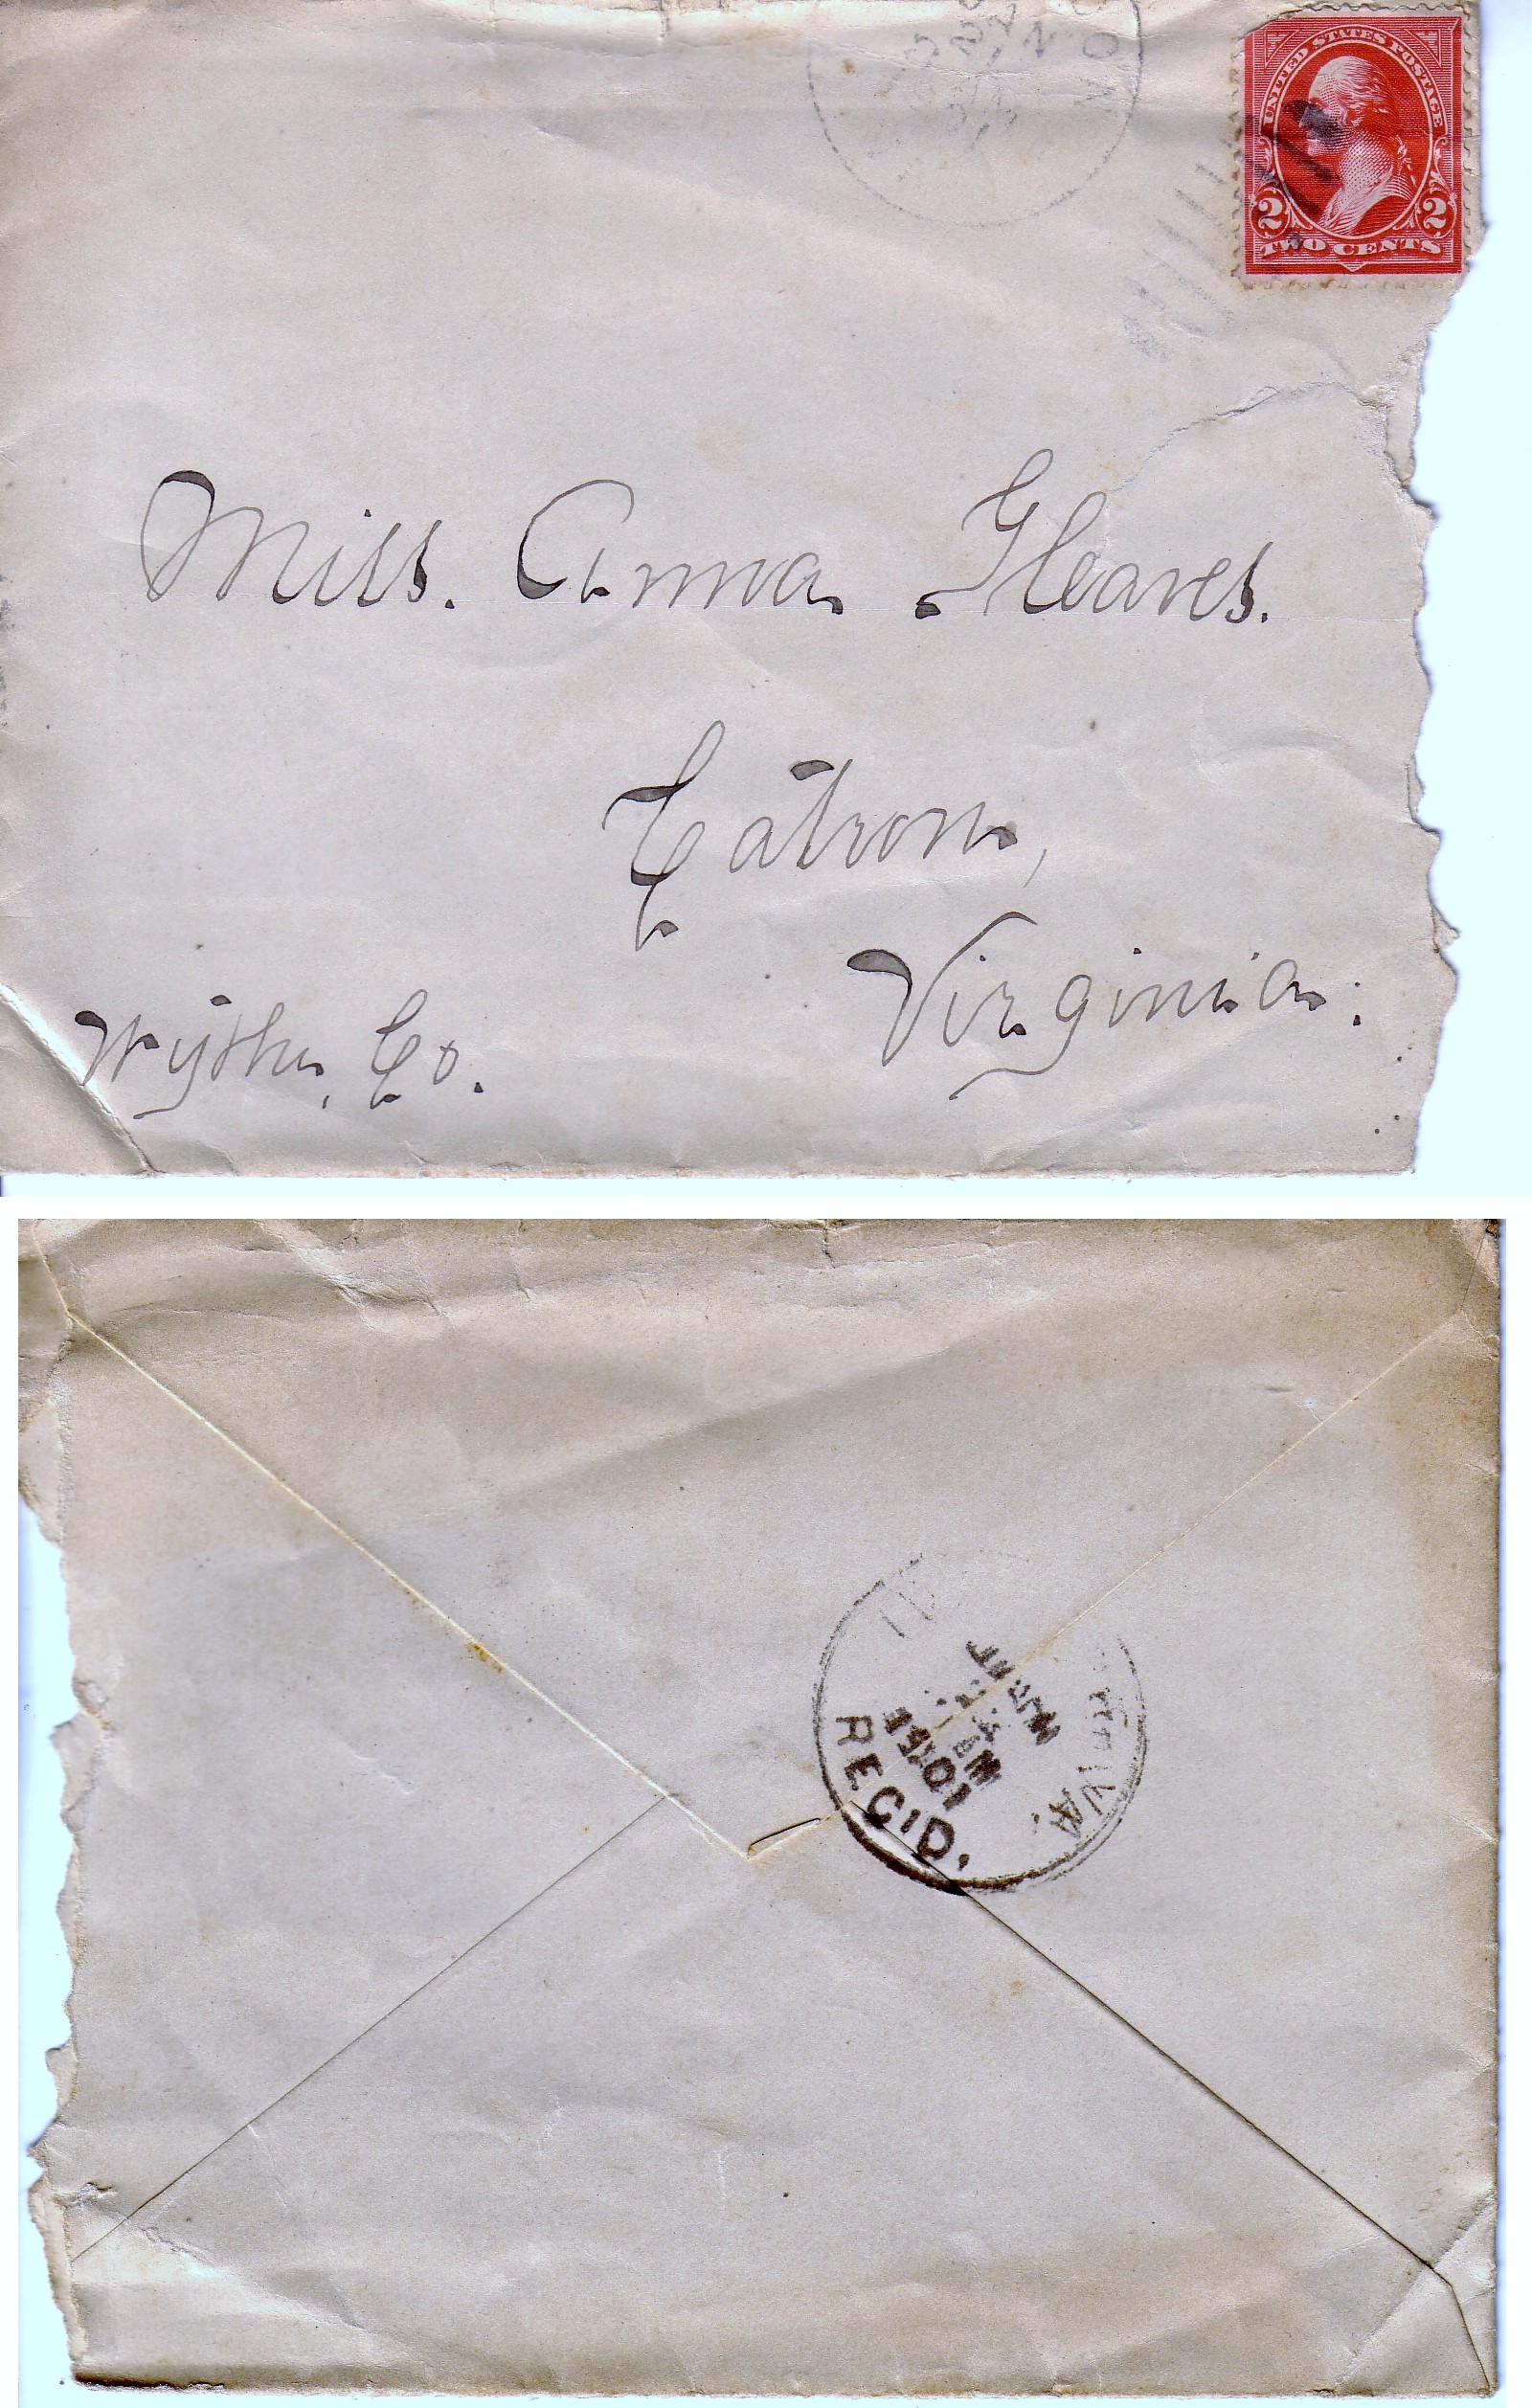 UNITED STATES POSTAGE
2 2
TWO CENTS
Miss. Anna Gleaves.
Catron,
Virginia.
Wythe, Co.
VA.
1901
REC'D.